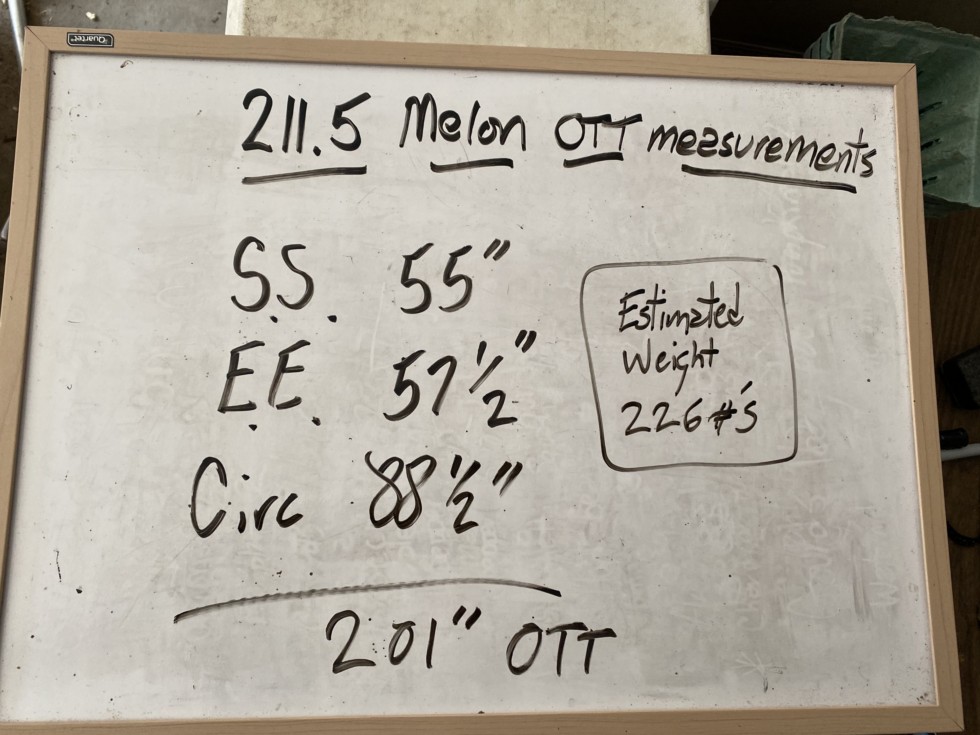 Quartet
211.5 Melon OTT measurements
S.S. 55"
E.E. 57 1/2"
Circ 88 1/2"
201" OTT
Estimated
Weight
226 #'s